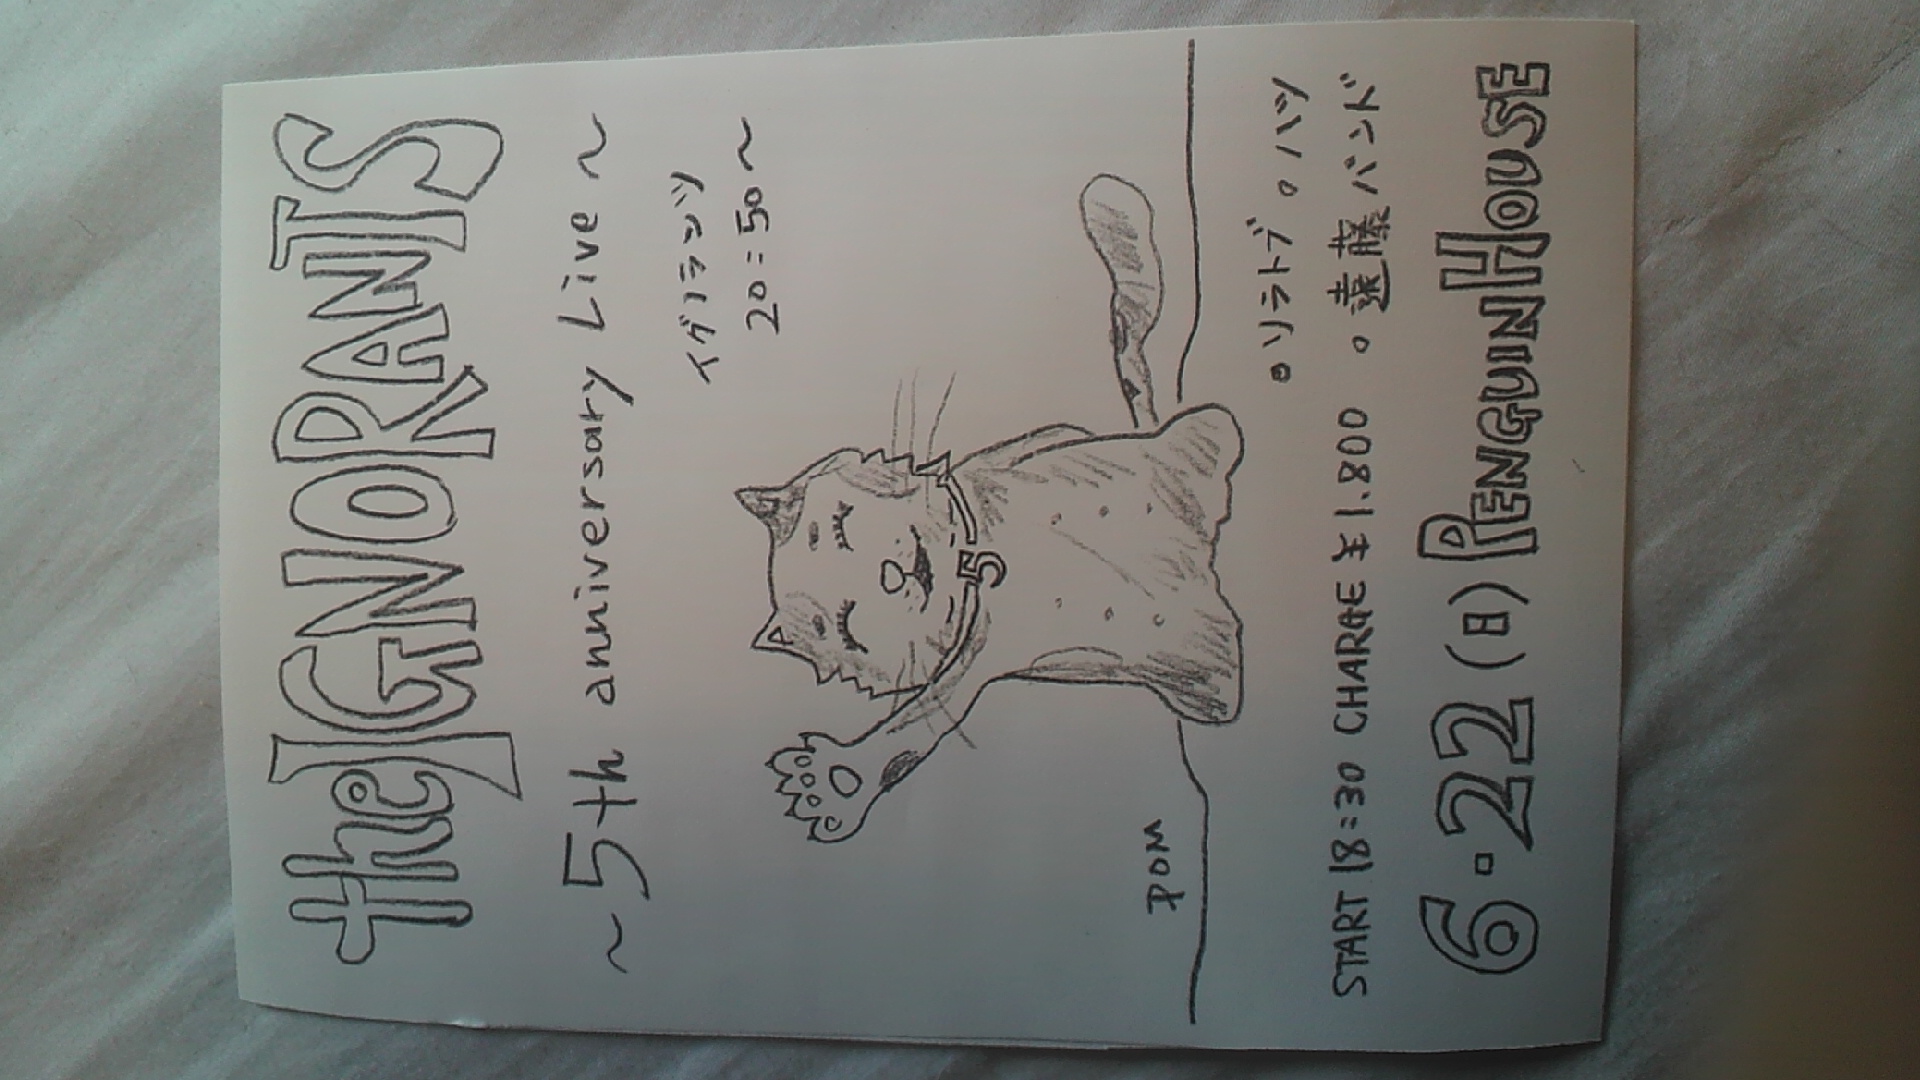 the IGNORANTS
～5th anniversary Live～
イグノランツ
20:50～
5
POM
。ソラトブ。ハツ
START 18:30 CHARGE ¥1.800 。遠藤バンド
6.22(日) PENGUINHOUSE